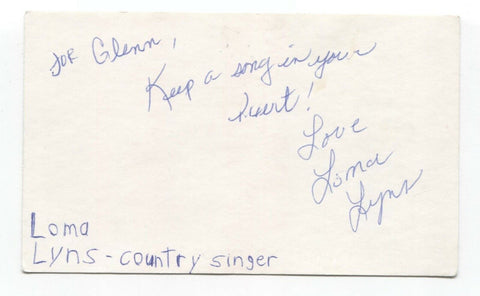 for Glenn,
Keep a song in your
heart!
Love
Loma
Lyns
Loma
Lyns - country singer